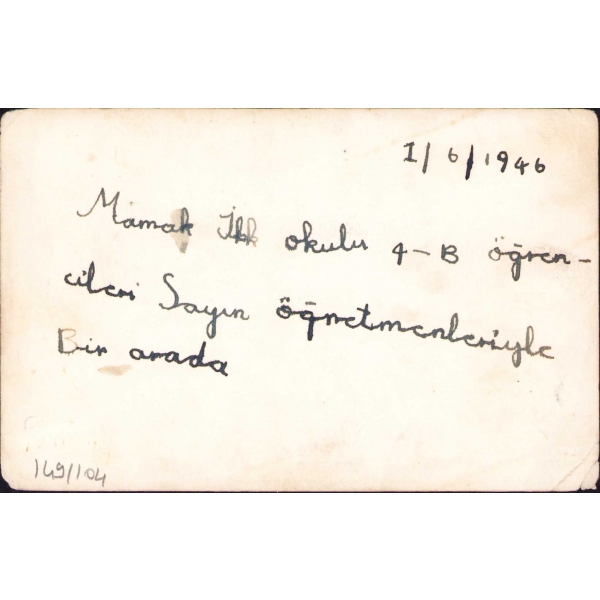 1/6/1946
Mamak İlk okulu 4-B öğren-
cileri Sayın öğretmenleriyle
Bir arada
149/104